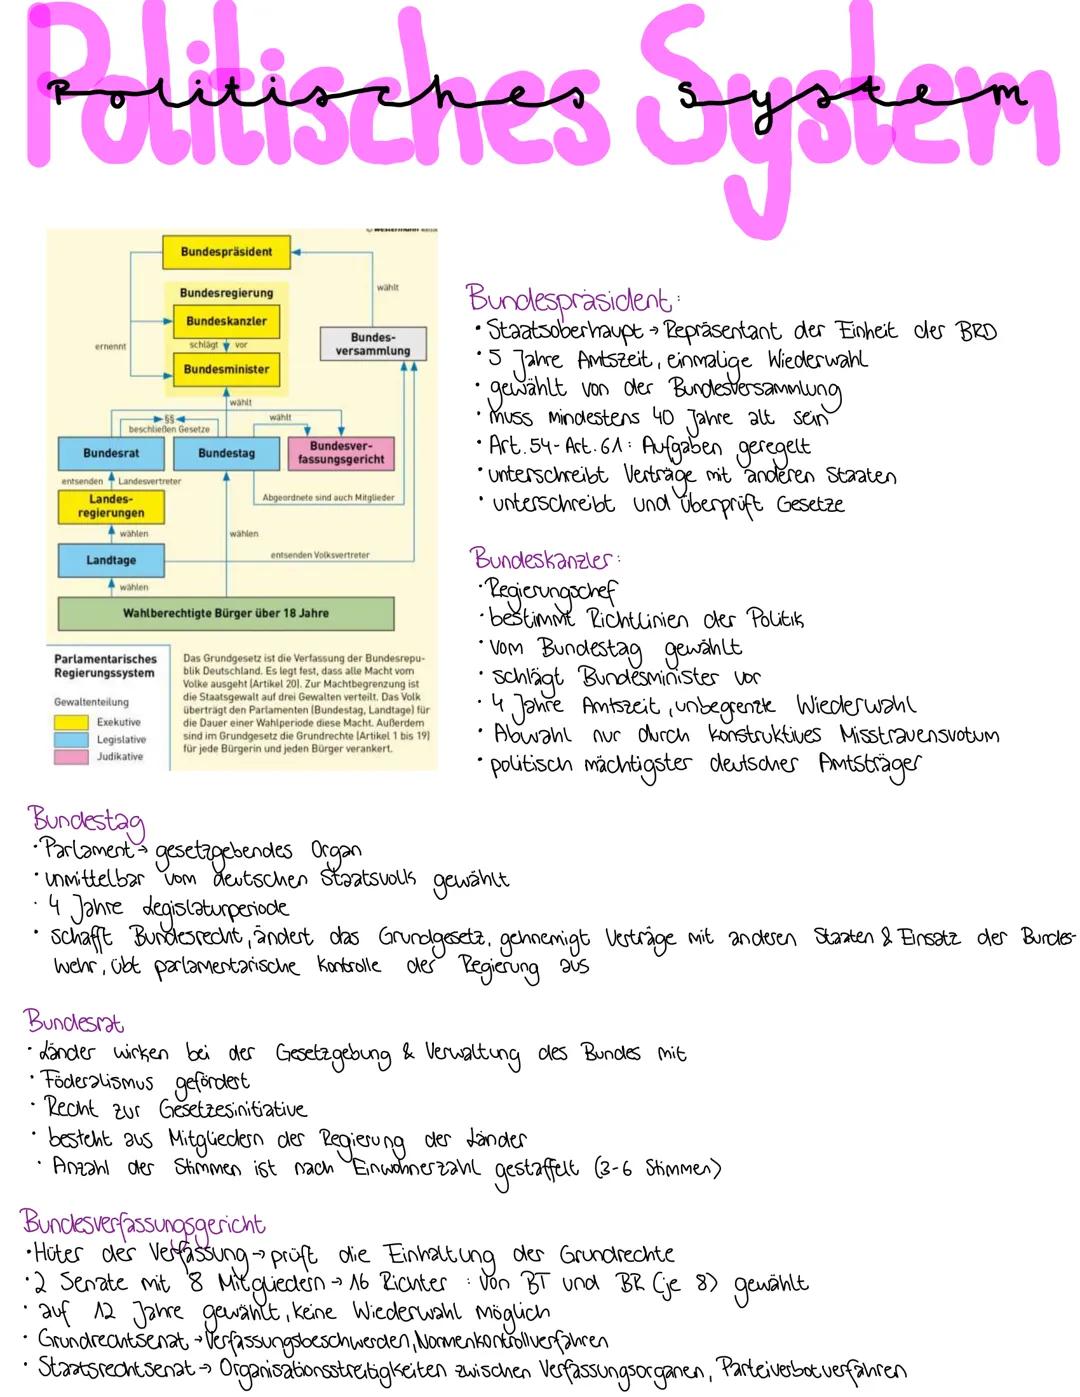 Politisches System
Politisches System
© westermann
Bundespräsident
Bundesregierung
wählt
Bundeskanzler
ernennt
schlägt vor
Bundes-
versammlung
Bundesminister
wählt
§§
wählt
beschließen Gesetze
Bundesrat
Bundestag
Bundesver-
fassungsgericht
entsenden Landesvertreter
Landes-
regierungen
Abgeordnete sind auch Mitglieder
wählen
wählen
Landtage
entsenden Volksvertreter
wählen
Wahlberechtigte Bürger über 18 Jahre
Parlamentarisches
Regierungssystem
Gewaltenteilung
Exekutive
Legislative
Judikative
Das Grundgesetz ist die Verfassung der Bundesrepu-
blik Deutschland. Es legt fest, dass alle Macht vom
Volke ausgeht (Artikel 20). Zur Machtbegrenzung ist
die Staatsgewalt auf drei Gewalten verteilt. Das Volk
überträgt den Parlamenten (Bundestag, Landtage) für
die Dauer einer Wahlperiode diese Macht. Außerdem
sind im Grundgesetz die Grundrechte (Artikel 1 bis 19)
für jede Bürgerin und jeden Bürger verankert.
Bundespräsident:
· Staatsoberhaupt → Repräsentant der Einheit der BRD
· 5 Jahre Amtszeit, einmalige Wiederwahl
· gewählt von der Bundesversammlung
· muss mindestens 40 Jahre alt sein
· Art. 54- Art. 61: Aufgaben geregelt
· unterschreibt Verträge mit anderen Staaten
· unterschreibt und überprüft Gesetze
Bundeskanzler:
· Regierungschef
· bestimmt Richtlinien der Politik
· vom Bundestag gewählt
· schlägt Bundesminister vor
· 4 Jahre Amtszeit, unbegrenzte Wiederwahl
· Abwahl nur durch konstruktives Misstrauensvotum
· politisch mächtigster deutscher Amtsträger
Bundestag
· Parlament → gesetzgebendes Organ
· unmittelbar vom deutschen Staatsvolk gewählt
· 4 Jahre Legislaturperiode
· schafft Bundesrecht, ändert das Grundgesetz, gehnemigt Verträge mit anderen Staaten & Einsatz der Bundes-
wehr, übt parlamentarische Kontrolle der Regierung aus
Bundesrat
· Länder wirken bei der Gesetzgebung & Verwaltung des Bundes mit
· Föderalismus gefördert
· Recht zur Gesetzesinitiative
· besteht aus Mitgliedern der Regierung der Länder
· Anzahl der Stimmen ist nach Einwohnerzahl gestaffelt (3-6 Stimmen)
Bundesverfassungsgericht
· Hüter der Verfassung → prüft die Einhaltung der Grundrechte
· 2 Senate mit 8 Mitgliedern → 16 Richter : von BT und BR (je 8) gewählt
· auf 12 Jahre gewählt, keine Wiederwahl möglich
· Grundrechtsenat → Verfassungsbeschwerden, Normenkontrollverfahren
· Staatsrechtsenat → Organisationsstreitigkeiten zwischen Verfassungsorganen, Parteiverbotverfahren